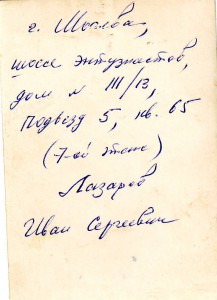 г. Москва,
шоссе энтузиастов,
дом № III/13,
Подъезд 5, кв. 65
(7-ой этаж)
Лазарев
Иван Сергеевич